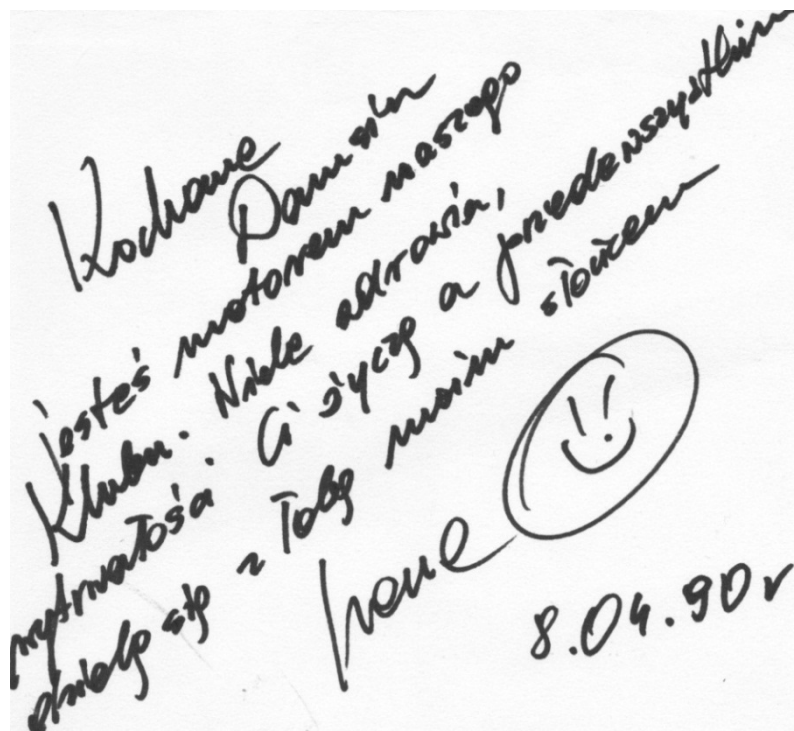 Kochana
Danusiu
jesteś motorem naszego
Klubu. Wiele zdrowia,
wytrwałości Ci życzę a przedewszystkim
dzielę się z Tobą moim słońcem
Irena
8.04.90r